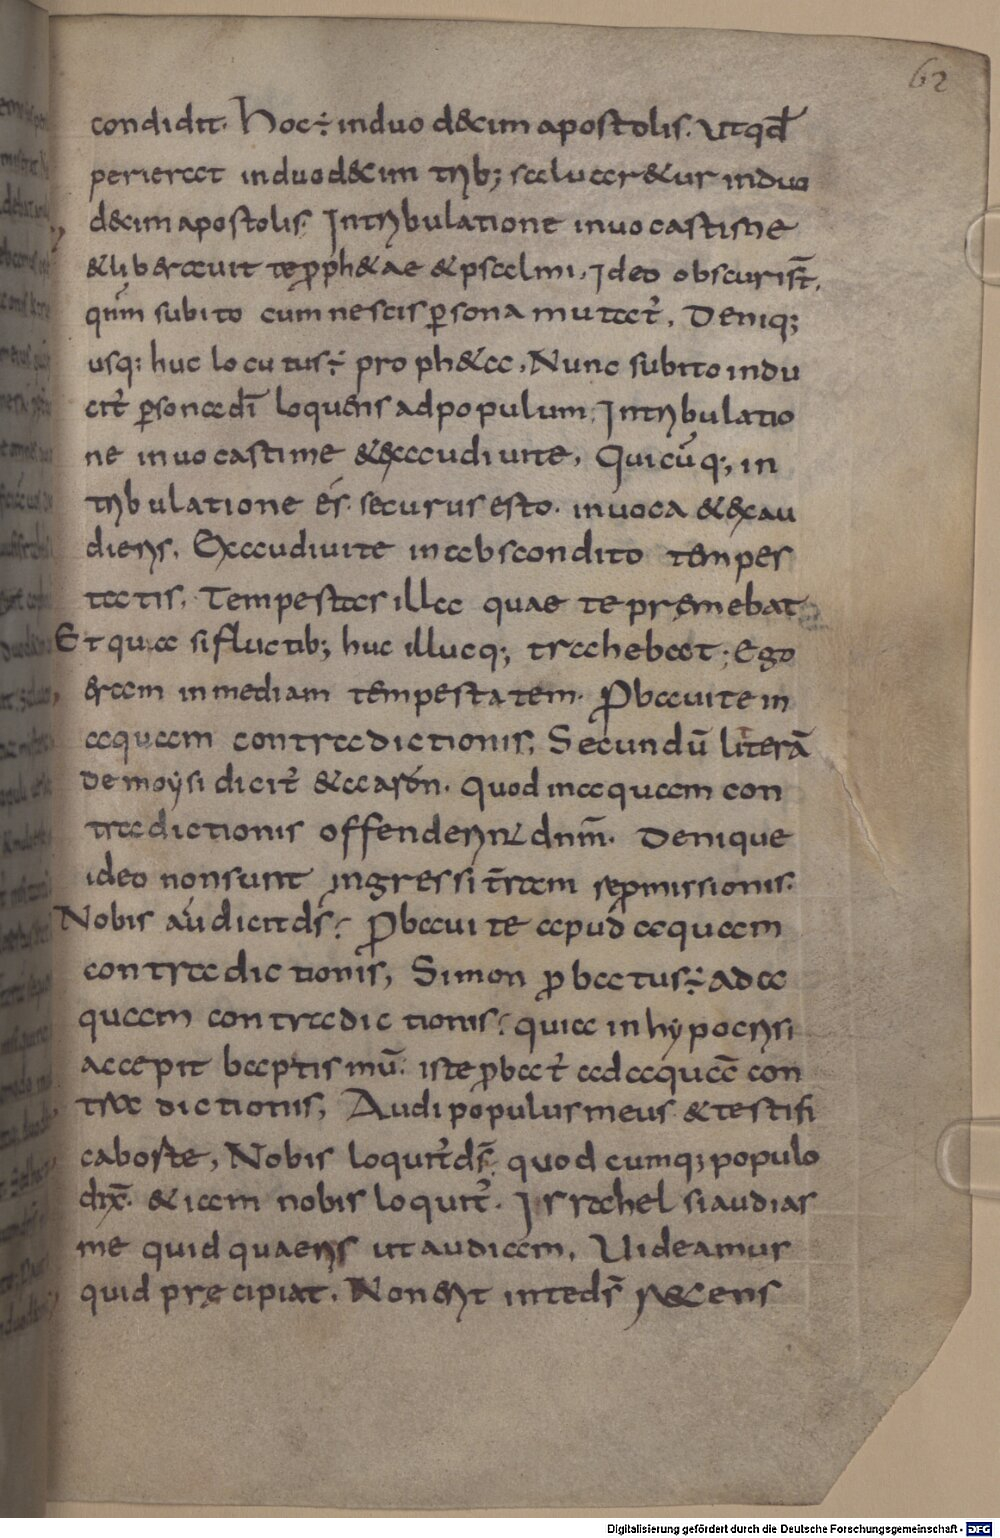 62
condidit. Hoc ÷ in duodecim apostolis. Ut qđ
perierat in duodecim trib; saluaretur in duo
decim apostolis. In tribulatione inuocasti me
& liberauit te ꝓph&ae & psalmi. Ideo obscuri sт̄,
qm̄ subito cum nescis ꝑsona mutat̉. Deniq;
usq; huc locutus ÷ proph&a. Nunc subito indu
cit̉ ꝑsona dī loquens ad populum; In tribulatio
ne inuocasti me & exaudiui te, Quicūq;, in
tribulatione és. securus esto. inuoca & exau
dieris. Exaudiui te in abscondito tempes
tatis. Tempestas illa quae te pręmebat
Et quae si fluctib; huc illucq; trahebat; Ego
eram in mediam tempestatem. Ꝓbaui te in
aquam contradictionis. Secundū literā
de moysi dicit̉ & aarón. quod in aquam con
tradictionis offenderunt dnm̄. Denique
ideo non sunt ingressi т̄ram repromissionis.
Nobis aū dicit ds̄; Ꝓbaui te apud aquam
contradictionis, Simon ꝓbatus ÷ ad a
quam contradictionis; quia in hypocrisi
accepit baptismū. iste ꝓbat̉ ad aquā con
tra dictionis, Audi populus meus & testifi
cabor te, Nobis loquit̉ ds̄, quod cumq; populo
dix̄. & iam nobis loquit̉. Israhel si audias
me quid quaeris ut audiam, Uideamus
quid pręcipiat. Non erit in te ds̄ recens
Digitalisierung gefördert durch die Deutsche Forschungsgemeinschaft - DFG